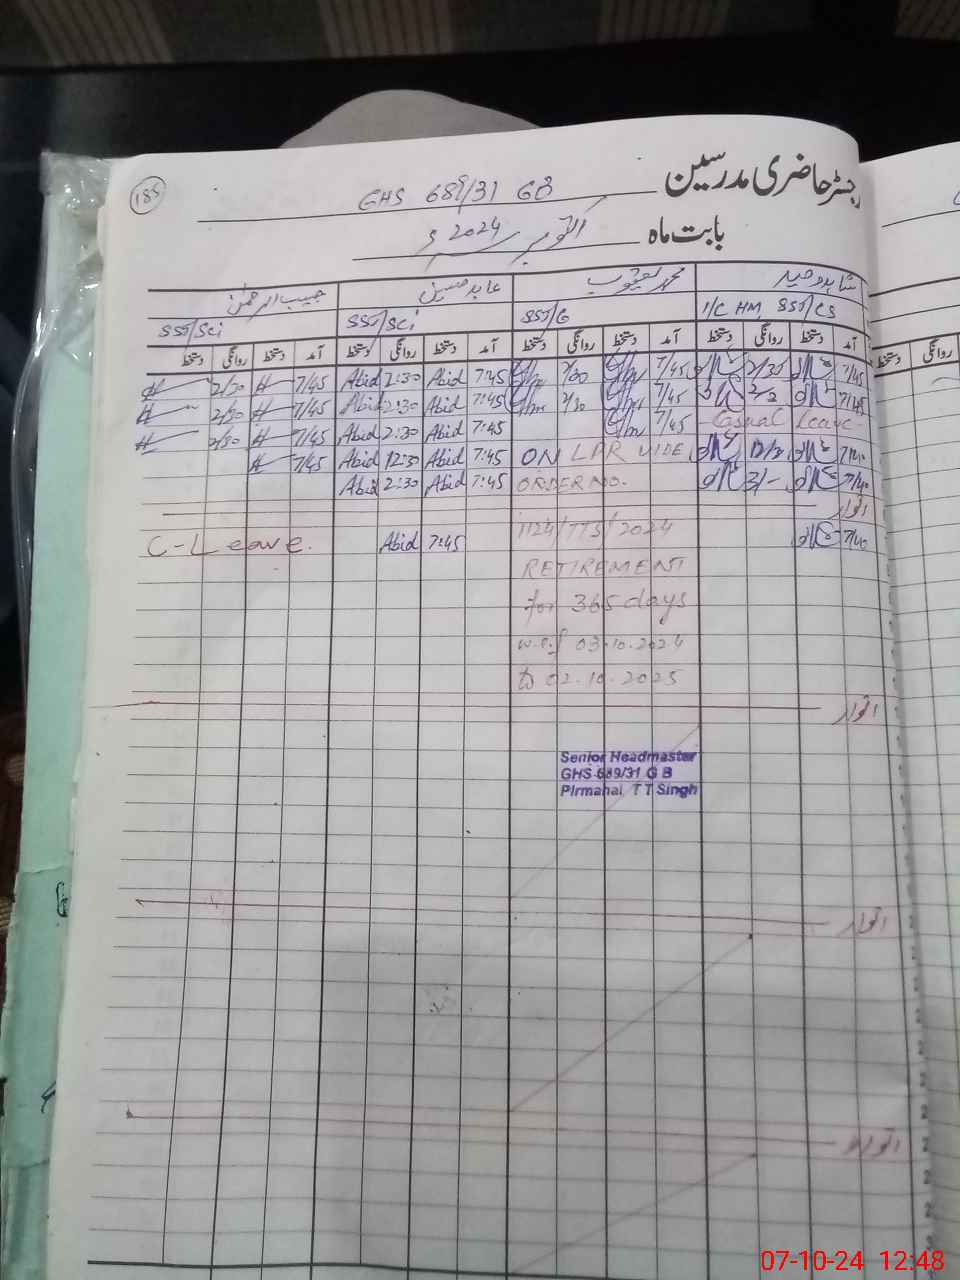 185
رجسٹر حاضری مدرسین GHS 689/31 GB
بابت ماہ اکتوبر 2024ء
شاہد وحید محمد یعقوب عابد حسین حبیب الرحمٰن
I/C HM, SST/CS SST/G SST/Sci SST/Sci
آمد دستخط روانگی دستخط آمد دستخط روانگی دستخط آمد دستخط روانگی دستخط آمد دستخط روانگی دستخط
7/45 2/30 7/45 7/45 Abid 2:30 Abid 7/45 2/30
7/45 7/45 7:45 Abid 2:30 Abid 7/45 2/30
Casual Leave 7/45 7:45 Abid 2:30 Abid 7/45 2/30
7/40 12/30 ON LPR VIDE 7:45 Abid 12:30 Abid 7/45
7/40 2/- ORDER NO. 7:45 Abid 2:30 Abid
اتوار
7/40 1124/TTS/2024 7:45 Abid C-Leave.
RETIREMENT
for 365 days
w.e.f 03.10.2024
to 02.10.2025
اتوار
Senior Headmaster
GHS 689/31 G B
Pirmahal T T Singh
اتوار
اتوار
07-10-24 12:48